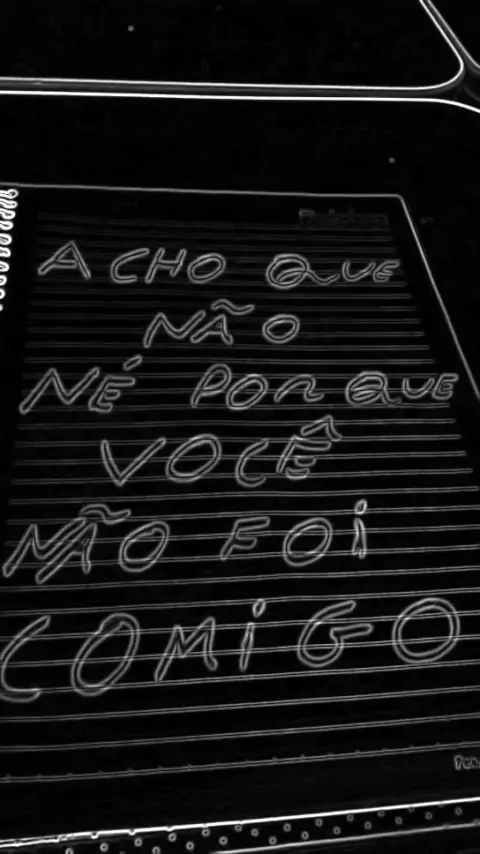 ACHO QUE
NÃO
NÉ PORQUE
VOCÊ
NÃO FOI
COMIGO